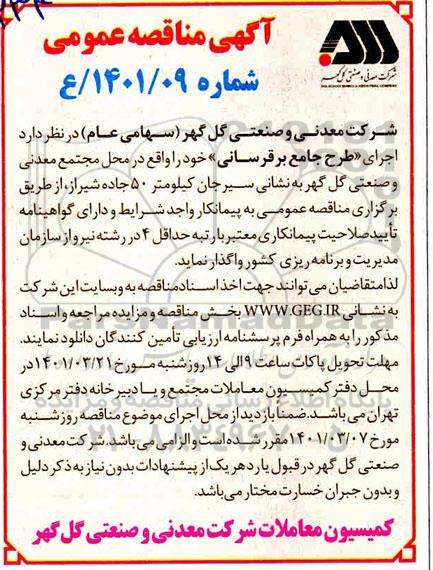 آگهی مناقصه عمومی
شماره ۱۴۰۱/۰۹/ع
شرکت معدنی و صنعتی گل گهر
GOL GOHAR MINING & INDUSTRIAL COMPANY
شرکت معدنی و صنعتی گل گهر (سهامی عام) در نظر دارد
اجرای «طرح جامع برقرسانی» خود را واقع در محل مجتمع معدنی
و صنعتی گل گهر به نشانی سیرجان کیلومتر ۵۰ جاده شیراز، از طریق
برگزاری مناقصه عمومی به پیمانکار واجد شرایط و دارای گواهینامه
تأیید صلاحیت پیمانکاری معتبر با رتبه حداقل ۴ در رشته نیرو از سازمان
مدیریت و برنامه ریزی کشور واگذار نماید.
لذا متقاضیان می توانند جهت اخذ اسناد مناقصه به وبسایت این شرکت
به نشانی WWW.GEG.IR بخش مناقصه و مزایده مراجعه و اسناد
مذکور را به همراه فرم پرسشنامه ارزیابی تأمین کنندگان دانلود نمایند.
مهلت تحویل پاکات ساعت ۹ الی ۱۴ روز شنبه مورخ ۱۴۰۱/۰۳/۲۱ در
محل دفتر کمیسیون معاملات مجتمع و یا دبیرخانه دفتر مرکزی
تهران می باشد. ضمناً بازدید از محل اجرای موضوع مناقصه روز شنبه
مورخ ۱۴۰۱/۰۳/۰۷ مقرر شده است و الزامی می باشد. شرکت معدنی و
صنعتی گل گهر در قبول یا رد هر یک از پیشنهادات بدون نیاز به ذکر دلیل
و بدون جبران خسارت مختار می باشد.
کمیسیون معاملات شرکت معدنی و صنعتی گل گهر